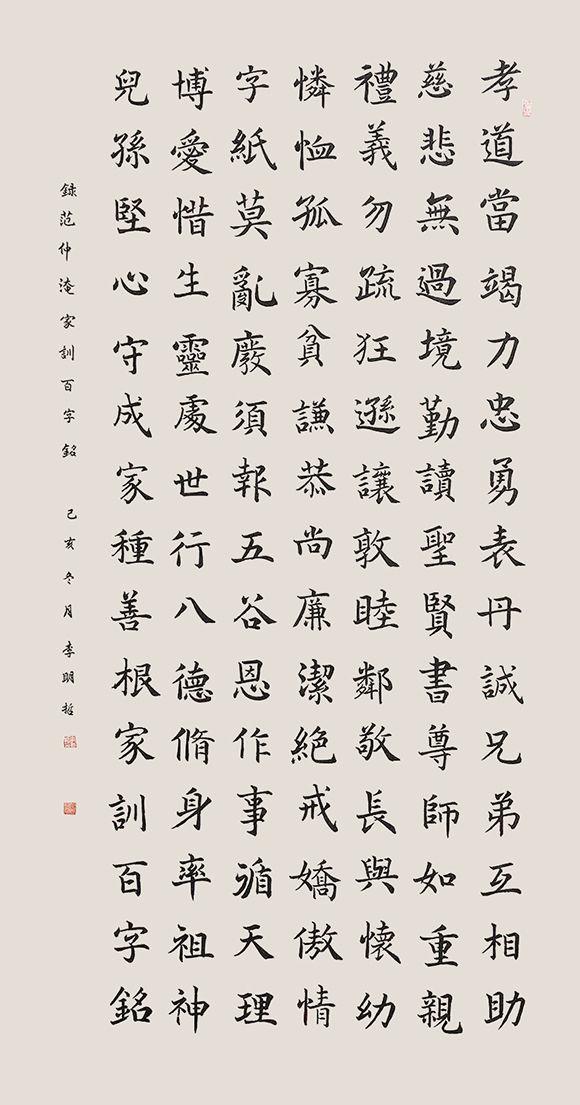 孝道當竭力忠勇表丹誠兄弟互相助
慈悲無過境勤讀聖賢書尊師如重親
禮義勿疏狂遜讓敦睦鄰敬長與懷幼
憐恤孤寡貧謙恭尚廉潔絶戒嬌傲情
字紙莫亂廢須報五谷恩作事循天理
博愛惜生靈處世行八德脩身率祖神
兒孫堅心守成家種善根家訓百字銘
録范仲淹家訓百字銘 己亥冬月 李明哲